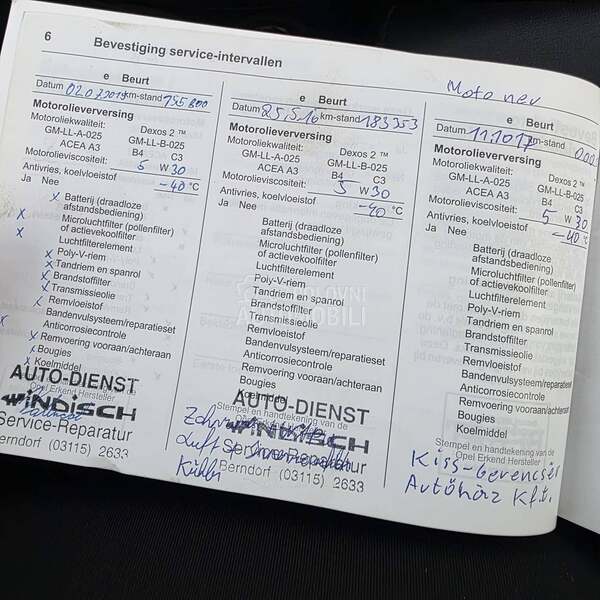 6
Bevestiging service-intervallen
e Beurt
Datum 02.07.2015 km-stand 155.800
Motorolieverversing
Motoroliekwaliteit: Dexos 2 ™
GM-LL-A-025 GM-LL-B-025
ACEA A3 B4 C3
Motorolieviscositeit: 5 W 30
Antivries, koelvloeistof -40 °C
Ja Nee
x Batterij (draadloze
afstandsbediening)
x Microluchtfilter (pollenfilter)
of actievekoolfilter
x Luchtfilterelement
x Poly-V-riem
x Tandriem en spanrol
x Brandstoffilter
x Transmissieolie
x Remvloeistof
Bandenvulsysteem/reparatieset
Anticorrosiecontrole
x Remvoering vooraan/achteraan
x Bougies
x Koelmiddel
AUTO-DIENST
WiNDiSCH
Service-Reparatur
Berndorf (03115) 2633
e Beurt
Datum 25.5.16 km-stand 183353
Motorolieverversing
Motoroliekwaliteit: Dexos 2 ™
GM-LL-A-025 GM-LL-B-025
ACEA A3 B4 C3
Motorolieviscositeit: 5 W 30
Antivries, koelvloeistof -40 °C
Ja Nee
Batterij (draadloze
afstandsbediening)
Microluchtfilter (pollenfilter)
of actievekoolfilter
Luchtfilterelement
Poly-V-riem
Tandriem en spanrol
Brandstoffilter
Transmissieolie
Remvloeistof
Bandenvulsysteem/reparatieset
Anticorrosiecontrole
Remvoering vooraan/achteraan
Bougies
Koelmiddel
AUTO-DIENST
Stempel en handtekening van de
WiNDiSCH
Service-Reparatur
Berndorf (03115) 2633
Luft
e Beurt
Datum 11.10.17 km-stand
Motorolieverversing
Motoroliekwaliteit: Dexos 2 ™
GM-LL-A-025 GM-LL-B-025
ACEA A3 B4 C3
Motorolieviscositeit: 5 W 30
Antivries, koelvloeistof -40 °C
Ja Nee
Batterij (draadloze
afstandsbediening)
Microluchtfilter (pollenfilter)
of actievekoolfilter
Luchtfilterelement
Poly-V-riem
Tandriem en spanrol
Brandstoffilter
Transmissieolie
Remvloeistof
Bandenvulsysteem/reparatieset
Anticorrosiecontrole
Remvoering vooraan/achteraan
Bougies
Koelmiddel
Stempel en handtekening van de
Opel Erkend Hersteller
Kiss-Gerencsér
Autóház Kft.